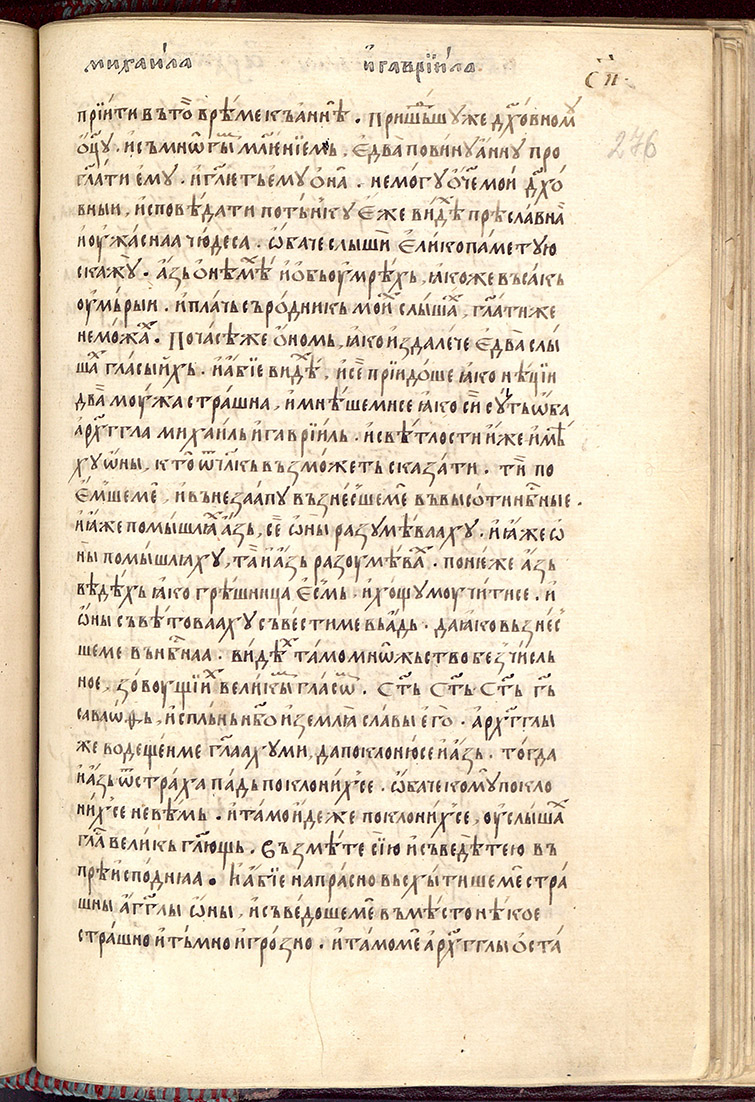 михаила и гаврїила.
си·
276
прїити въ то̑ врѣме къ аннѣ. Пришⷣьшу же дх҃овному
ѻц҃у. и съ мнѡгыⷨ мл҃енїемь, едва повину анну про
гл҃ати ему. и гл҃ѥть ему ѻна̀. не могу ѻч҃е мои дх҃о
вныи, исповѣдати потънку еже видⷯѣ прѣславнаа
и оужаснаа чюдеса. ѡбаче слыши елико паметую
скажу. азь ѻнѣмⷯѣ и обьоумрѣхь, ꙗкоже въсакь
оумьрыи. и плачь съродникь моиⷯ слышаⷯ, гл҃ати же
не можаⷯ. По часѣ же ѻномь, ꙗко издалече едва слы
шаⷯ гласы ихь. и абїе видⷯѣ, и се прїидоше ꙗко нѣцїи
два моужа страшна, и мнѣше ми се ꙗко си суть ѡба
архⷢ҇гла михаиль и гаврїиль. и свѣтлости иже имѣ
ху ѡны, кто ѿ чл҃кь възможеть сказати. ти по
емⷲше ме, и вънезаапу възнесⷲше ме въ высоти нбⷭ҇ные.
и ꙗже помышлꙗⷯ азь, се ѡны разумѣвлаху. и ꙗже ѡ
ны помышлꙗху, та и азь разоумѣваⷯ. понѥже азь
вѣдѣхь ꙗко грѣшница есмь. и хощу моучити се. и
ѡны съвѣтоваху съвести ме въ адь. да ꙗко възнес
ше ме въ нбⷭ҇наа. видѣⷯ тамо мнѡжьство безчисль
ное, зовущїиⷯ великыⷨ гласѡⷨ. Ст҃ь Ст҃ь Ст҃ь гь҃
саваѡѳь, испльнь нб҃о и землꙗ славы его. архⷢ҇глы
же водещеи ме гл҃аахуми, да поклоню се и азь. тогда
и азь ѿ страха падь поклонихⷭ҇е. ѡбаче кому покло
нихⷭ҇е не вѣмь. и тамо идеже поклонихⷭ҇е, оуслышаⷯ
гла҃ великь гл҃ющь. възмѣте сїю и съведѣте ю въ
прѣисподнꙗа. И абїе напрасно въсхытише ме стра
шны агг҃лы ѡны, и съведоше ме въ мѣсто нѣкое
страшно и тьмно и грозно. и тамо ме архⷢ҇глы ѻста